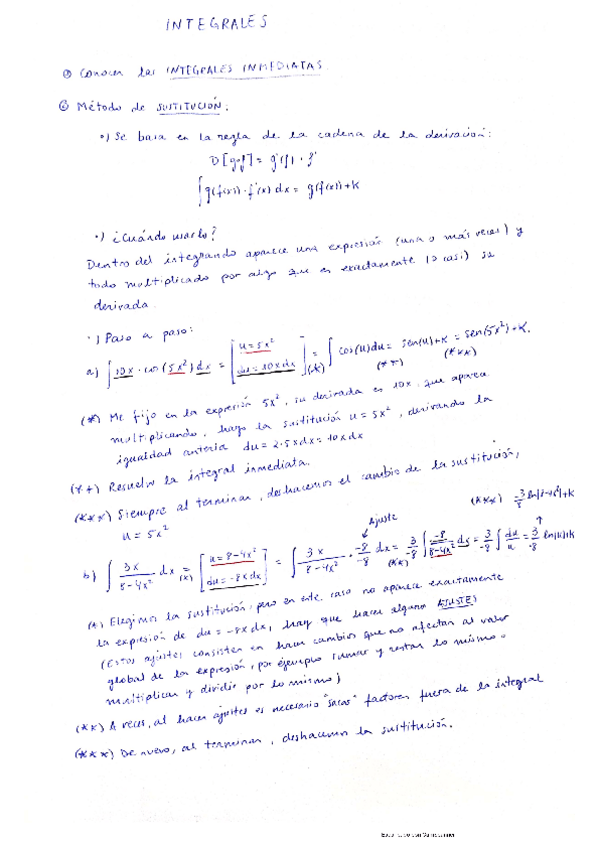 INTEGRALES
① Conocer las INTEGRALES INMEDIATAS.
② Método de SUSTITUCIÓN:
•) Se basa en la regla de la cadena de la derivación:
D[g∘f] = g'(f) · f'
∫g'(f(x)) · f'(x) dx = g(f(x)) + K
•) ¿Cuándo usarlo?
Dentro del integrando aparece una expresión (una o más veces) y
todo multiplicado por algo que es exactamente (o casi) su
derivada.
•) Paso a paso:
a) ∫10x · cos(5x²) dx = [u = 5x² du = 10x dx] =(*) ∫cos(u)du =(**) sen(u)+K =(***) sen(5x²)+K.
(*) Me fijo en la expresión 5x², su derivada es 10x, que aparece
multiplicando, hago la sustitución u = 5x², derivando la
igualdad anterior du = 2·5xdx = 10xdx
(**) Resuelvo la integral inmediata.
(***) Siempre al terminar, deshacemos el cambio de la sustitución,
u = 5x²
b) ∫ 3x/(8-4x²) dx =(*) [u = 8-4x² du = -8xdx] = ∫ 3x/(8-4x²) · -8/-8 dx =(**) 3/-8 ∫ -8/(8-4x²) dx = 3/-8 ∫ du/u = 3/-8 ln|u|+K
Ajuste
(***) -3/8 ln|8-4x²|+K
(*) Elegimos la sustitución, pero en este caso no aparece exactamente
la expresión de du = -8xdx, hay que hacer algún AJUSTE)
(Estos ajustes consisten en hacer cambios que no afectan al valor
global de la expresión, por ejemplo sumar y restar lo mismo o
multiplicar y dividir por lo mismo)
(**) A veces, al hacer ajustes es necesario "sacar" factores fuera de la integral
(***) De nuevo, al terminar, deshacemos la sustitución.